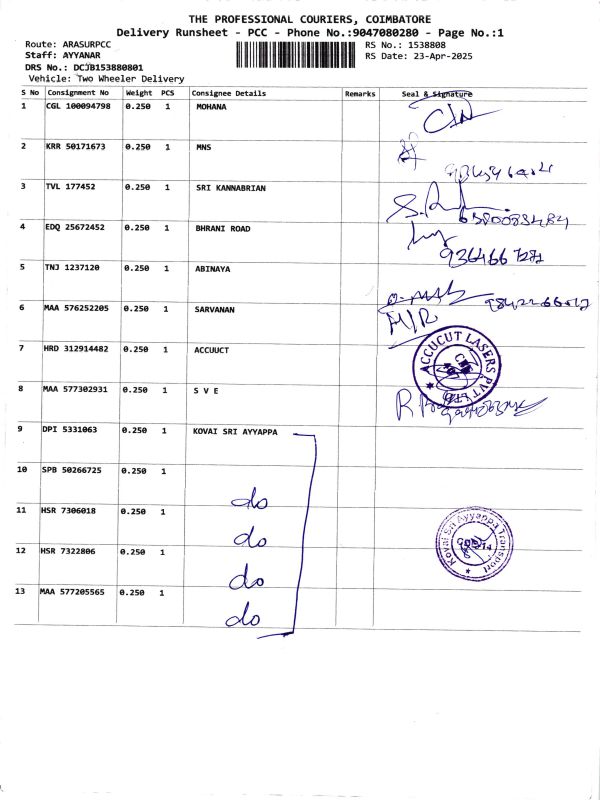 THE PROFESSIONAL COURIERS, COIMBATORE
Delivery Runsheet - PCC - Phone No.:9047080280 - Page No.:1
Route: ARASURPCC RS No.: 1538808
Staff: AYYANAR RS Date: 23-Apr-2025
DRS No.: DCJB153880801
Vehicle: Two Wheeler Delivery
S No Consignment No Weight PCS Consignee Details Remarks Seal & Signature
1 CGL 100094798 0.250 1 MOHANA
2 KRR 50171673 0.250 1 MNS
3 TVL 177452 0.250 1 SRI KANNABRIAN
4 EDQ 25672452 0.250 1 BHRANI ROAD
5 TNJ 1237120 0.250 1 ABINAYA
6 MAA 576252205 0.250 1 SARVANAN
7 HRD 312914482 0.250 1 ACCUUCT
ACCUCUT LASERS PVT LTD
8 MAA 577302931 0.250 1 S V E
9 DPI 5331063 0.250 1 KOVAI SRI AYYAPPA
10 SPB 50266725 0.250 1 do
11 HSR 7306018 0.250 1 do
Kovai Sri Ayyappa Transport
12 HSR 7322806 0.250 1 do
13 MAA 577205565 0.250 1 do